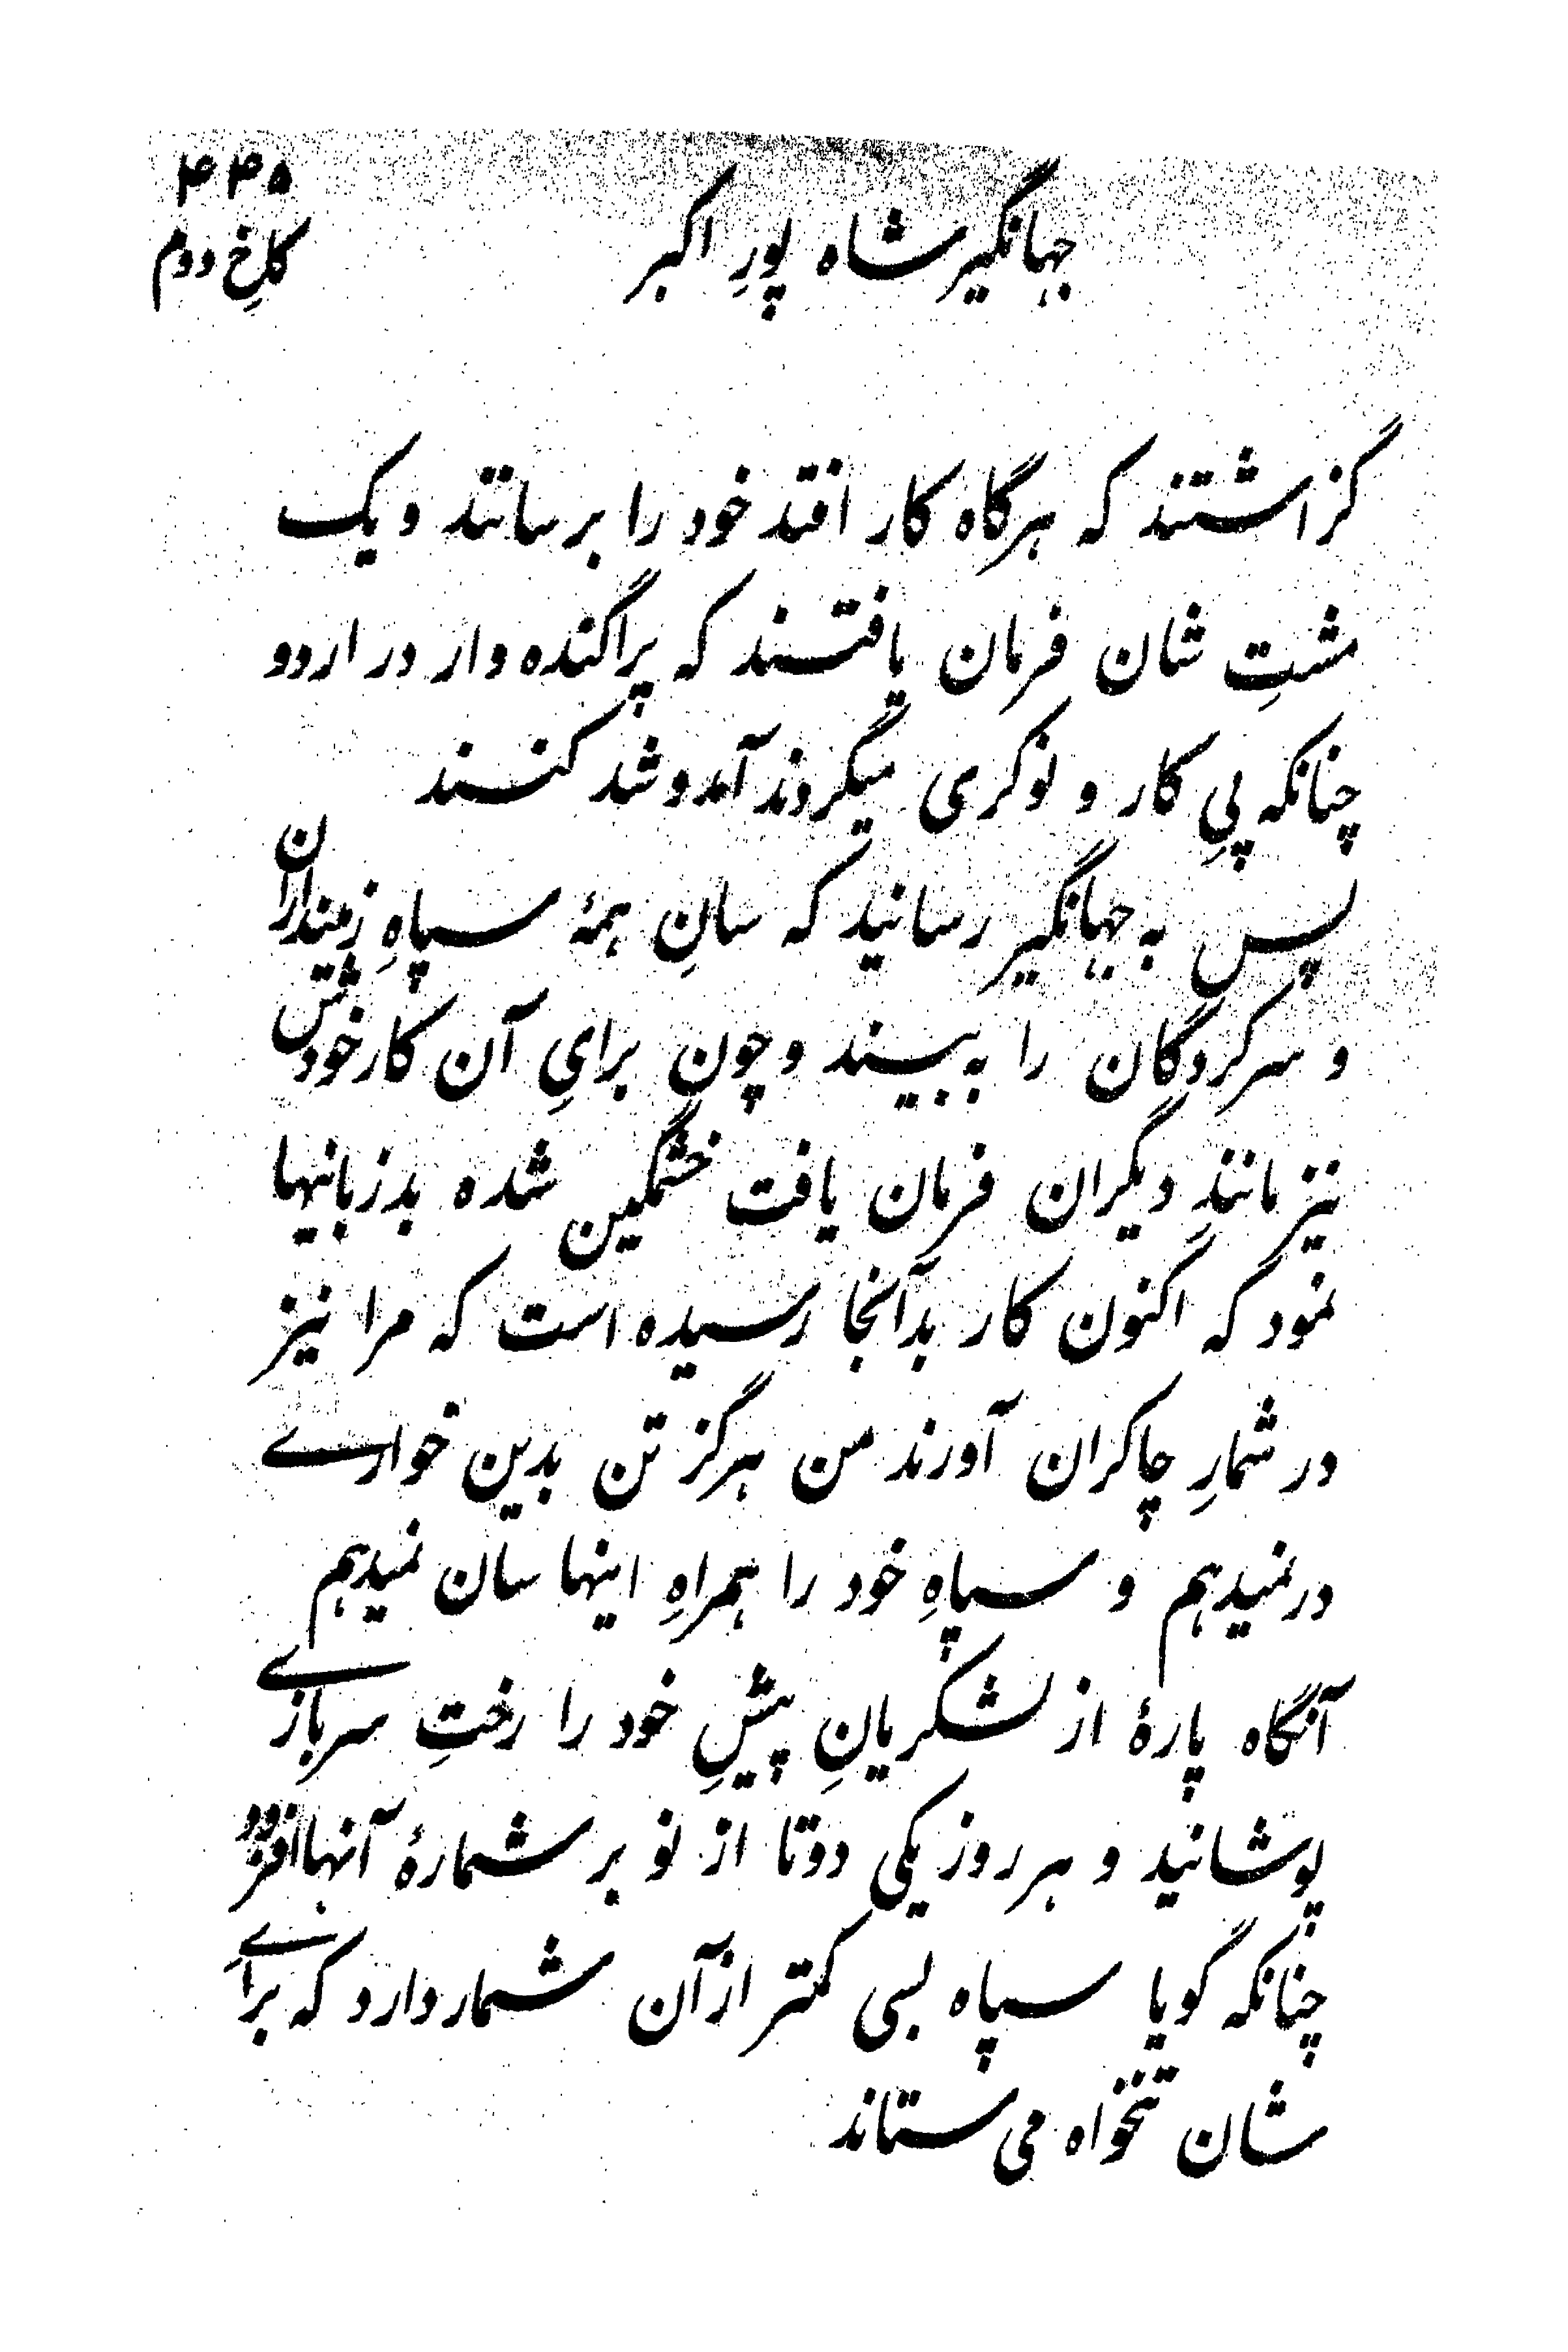 ۴۴۵
جهانگیر شاه پورِ اکبر
کاخِ دوم
گزاشتند که هرگاه کار افتد خود را برسانند و یک
مشتِ شان فرمان یافتند که پراگنده وار در اردو
چنانکه پیِ کار و نوکری میگردند آمد و شد کنند
پس به جهانگیر رسانید که سانِ همهٔ سپاهِ زمینداران
و سرکردگان را به بیند و چون برایِ آن کار خودش
نیز مانندِ دیگران فرمان یافت خشمگین شده بدزبانیها
نمود که اکنون کار بدآنجا رسیده است که مرا نیز
در شمارِ چاکران آورند من هرگز تن بدین خواری
در نمیدهم و سپاهِ خود را همراهِ اینها سان نمیدهم
آنگاه پارهٔ از لشکریانِ پیشِ خود را رختِ سربازی
پوشانید و هر روز یکی دوتا از نو بر شمارهٔ آنها افزود
چنانکه گویا سپاه بسی کمتر از آن شمار دارد که برایِ
شان تنخواه می ستاند